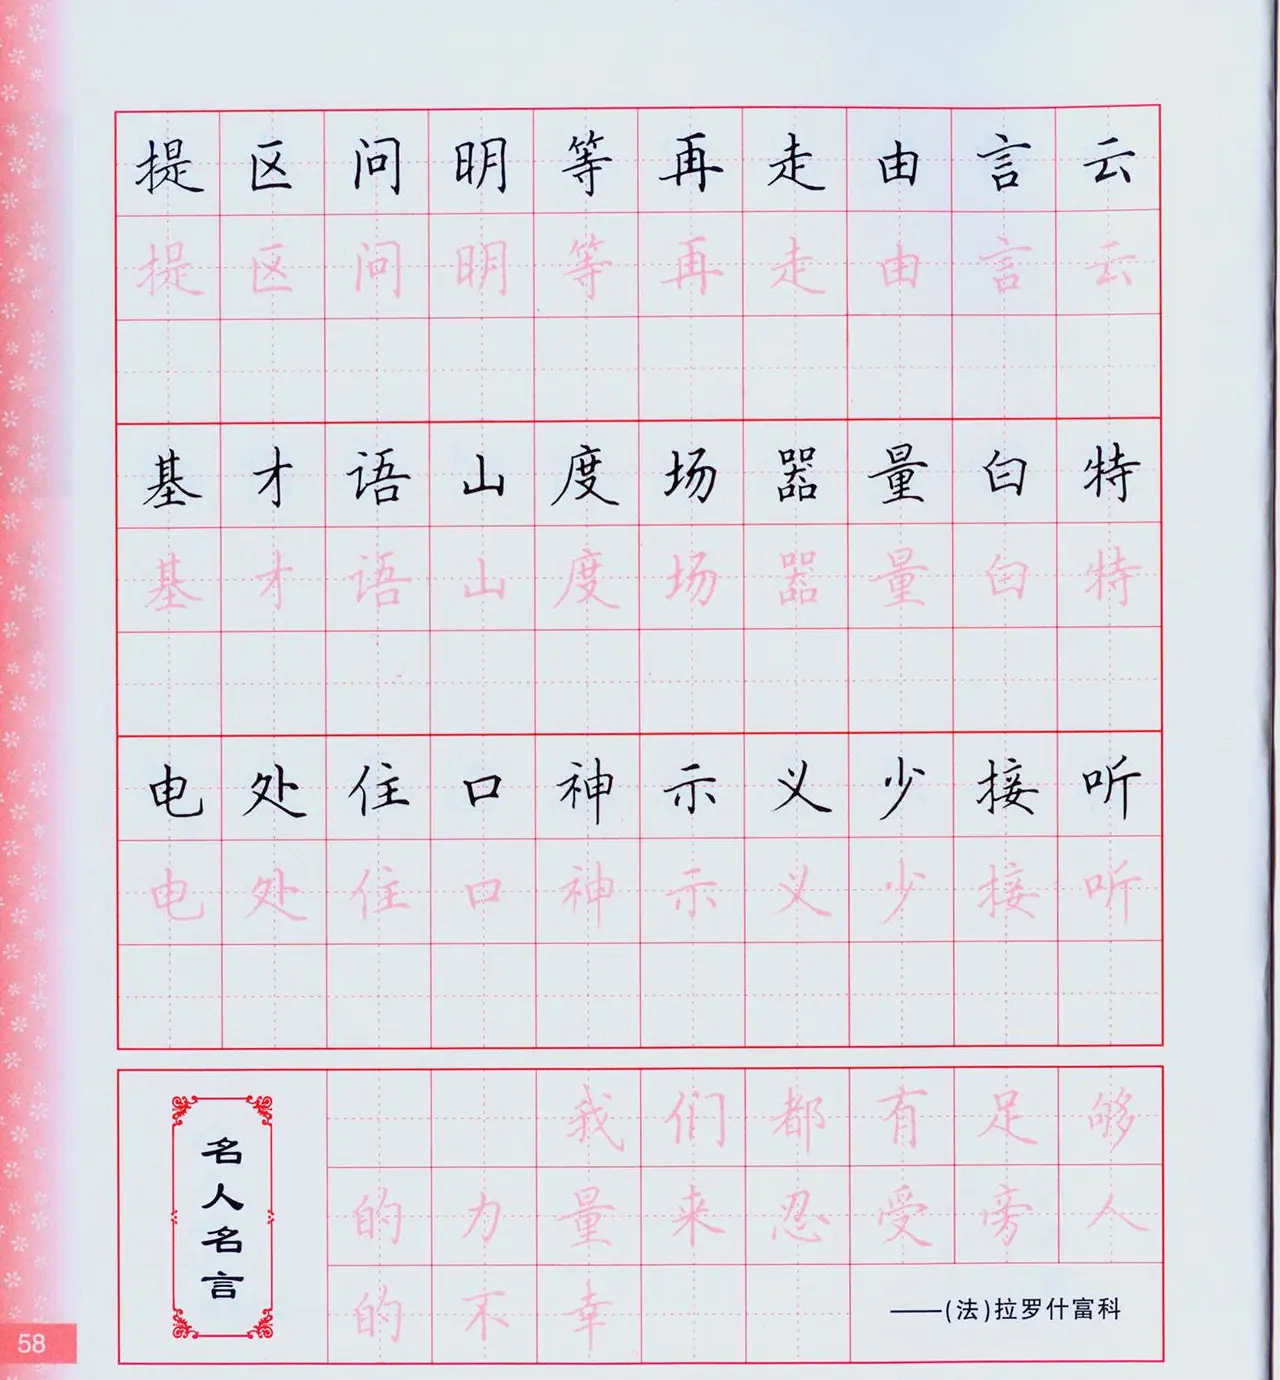 提区问明等再走由言云
提区问明等再走由言云
基才语山度场器量白特
基才语山度场器量白特
电处住口神示义少接听
电处住口神示义少接听
名人名言
我们都有足够
的力量来忍受旁人
的不幸
——(法)拉罗什富科
58